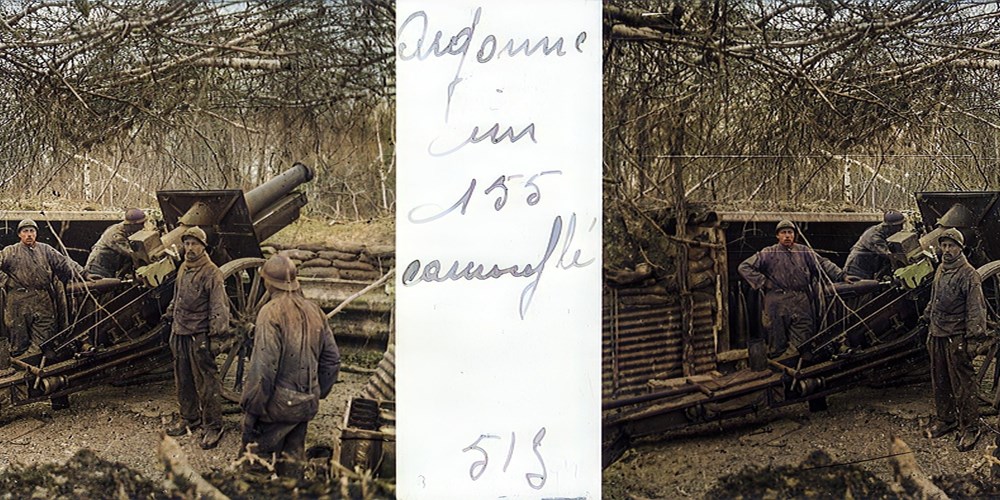 Argonne
un
155
camouflé
519